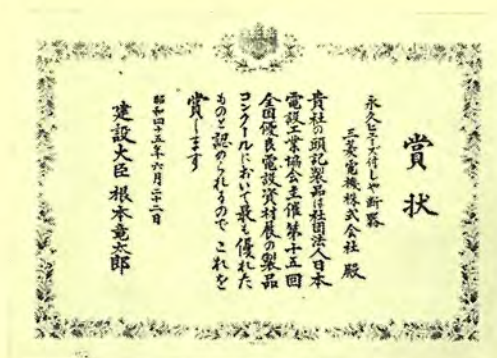 賞状
永久ヒューズ付しや断器
三菱電機株式会社 殿
貴社の頭記製品は社団法人日本
電設工業協会主催第十五回
全国優良電設資材展の製品
コンクールにおいて最も優れた
ものと認められるので これを
賞します
昭和四十五年六月二十二日
建設大臣 根本竜太郎